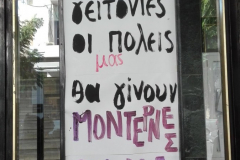 γειτονιές
οι πολεις
μας
θα γίνουν
ΜΟΝΤΕΡΝΕΣ